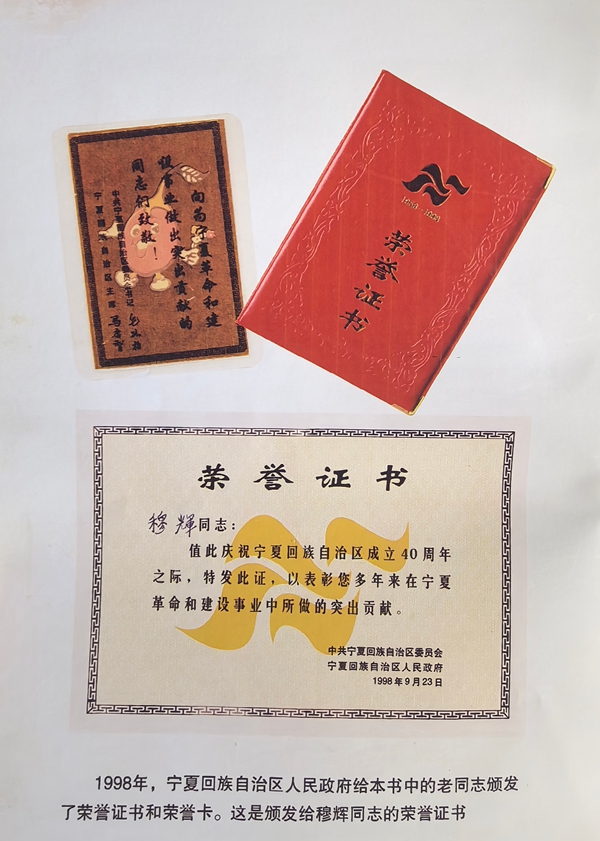 向为宁夏革命和建
设事业做出突出贡献的
同志们致敬！
中共宁夏回族自治区委员会书记
宁夏回族自治区主席 马启智
1958 1998
荣誉证书
荣誉证书
穆輝同志：
值此庆祝宁夏回族自治区成立40周年
之际，特发此证，以表彰您多年来在宁夏
革命和建设事业中所做的突出贡献。
中共宁夏回族自治区委员会
宁夏回族自治区人民政府
1998年9月23日
1998年，宁夏回族自治区人民政府给本书中的老同志颁发
了荣誉证书和荣誉卡。这是颁发给穆辉同志的荣誉证书